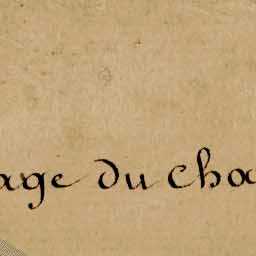 age du cha